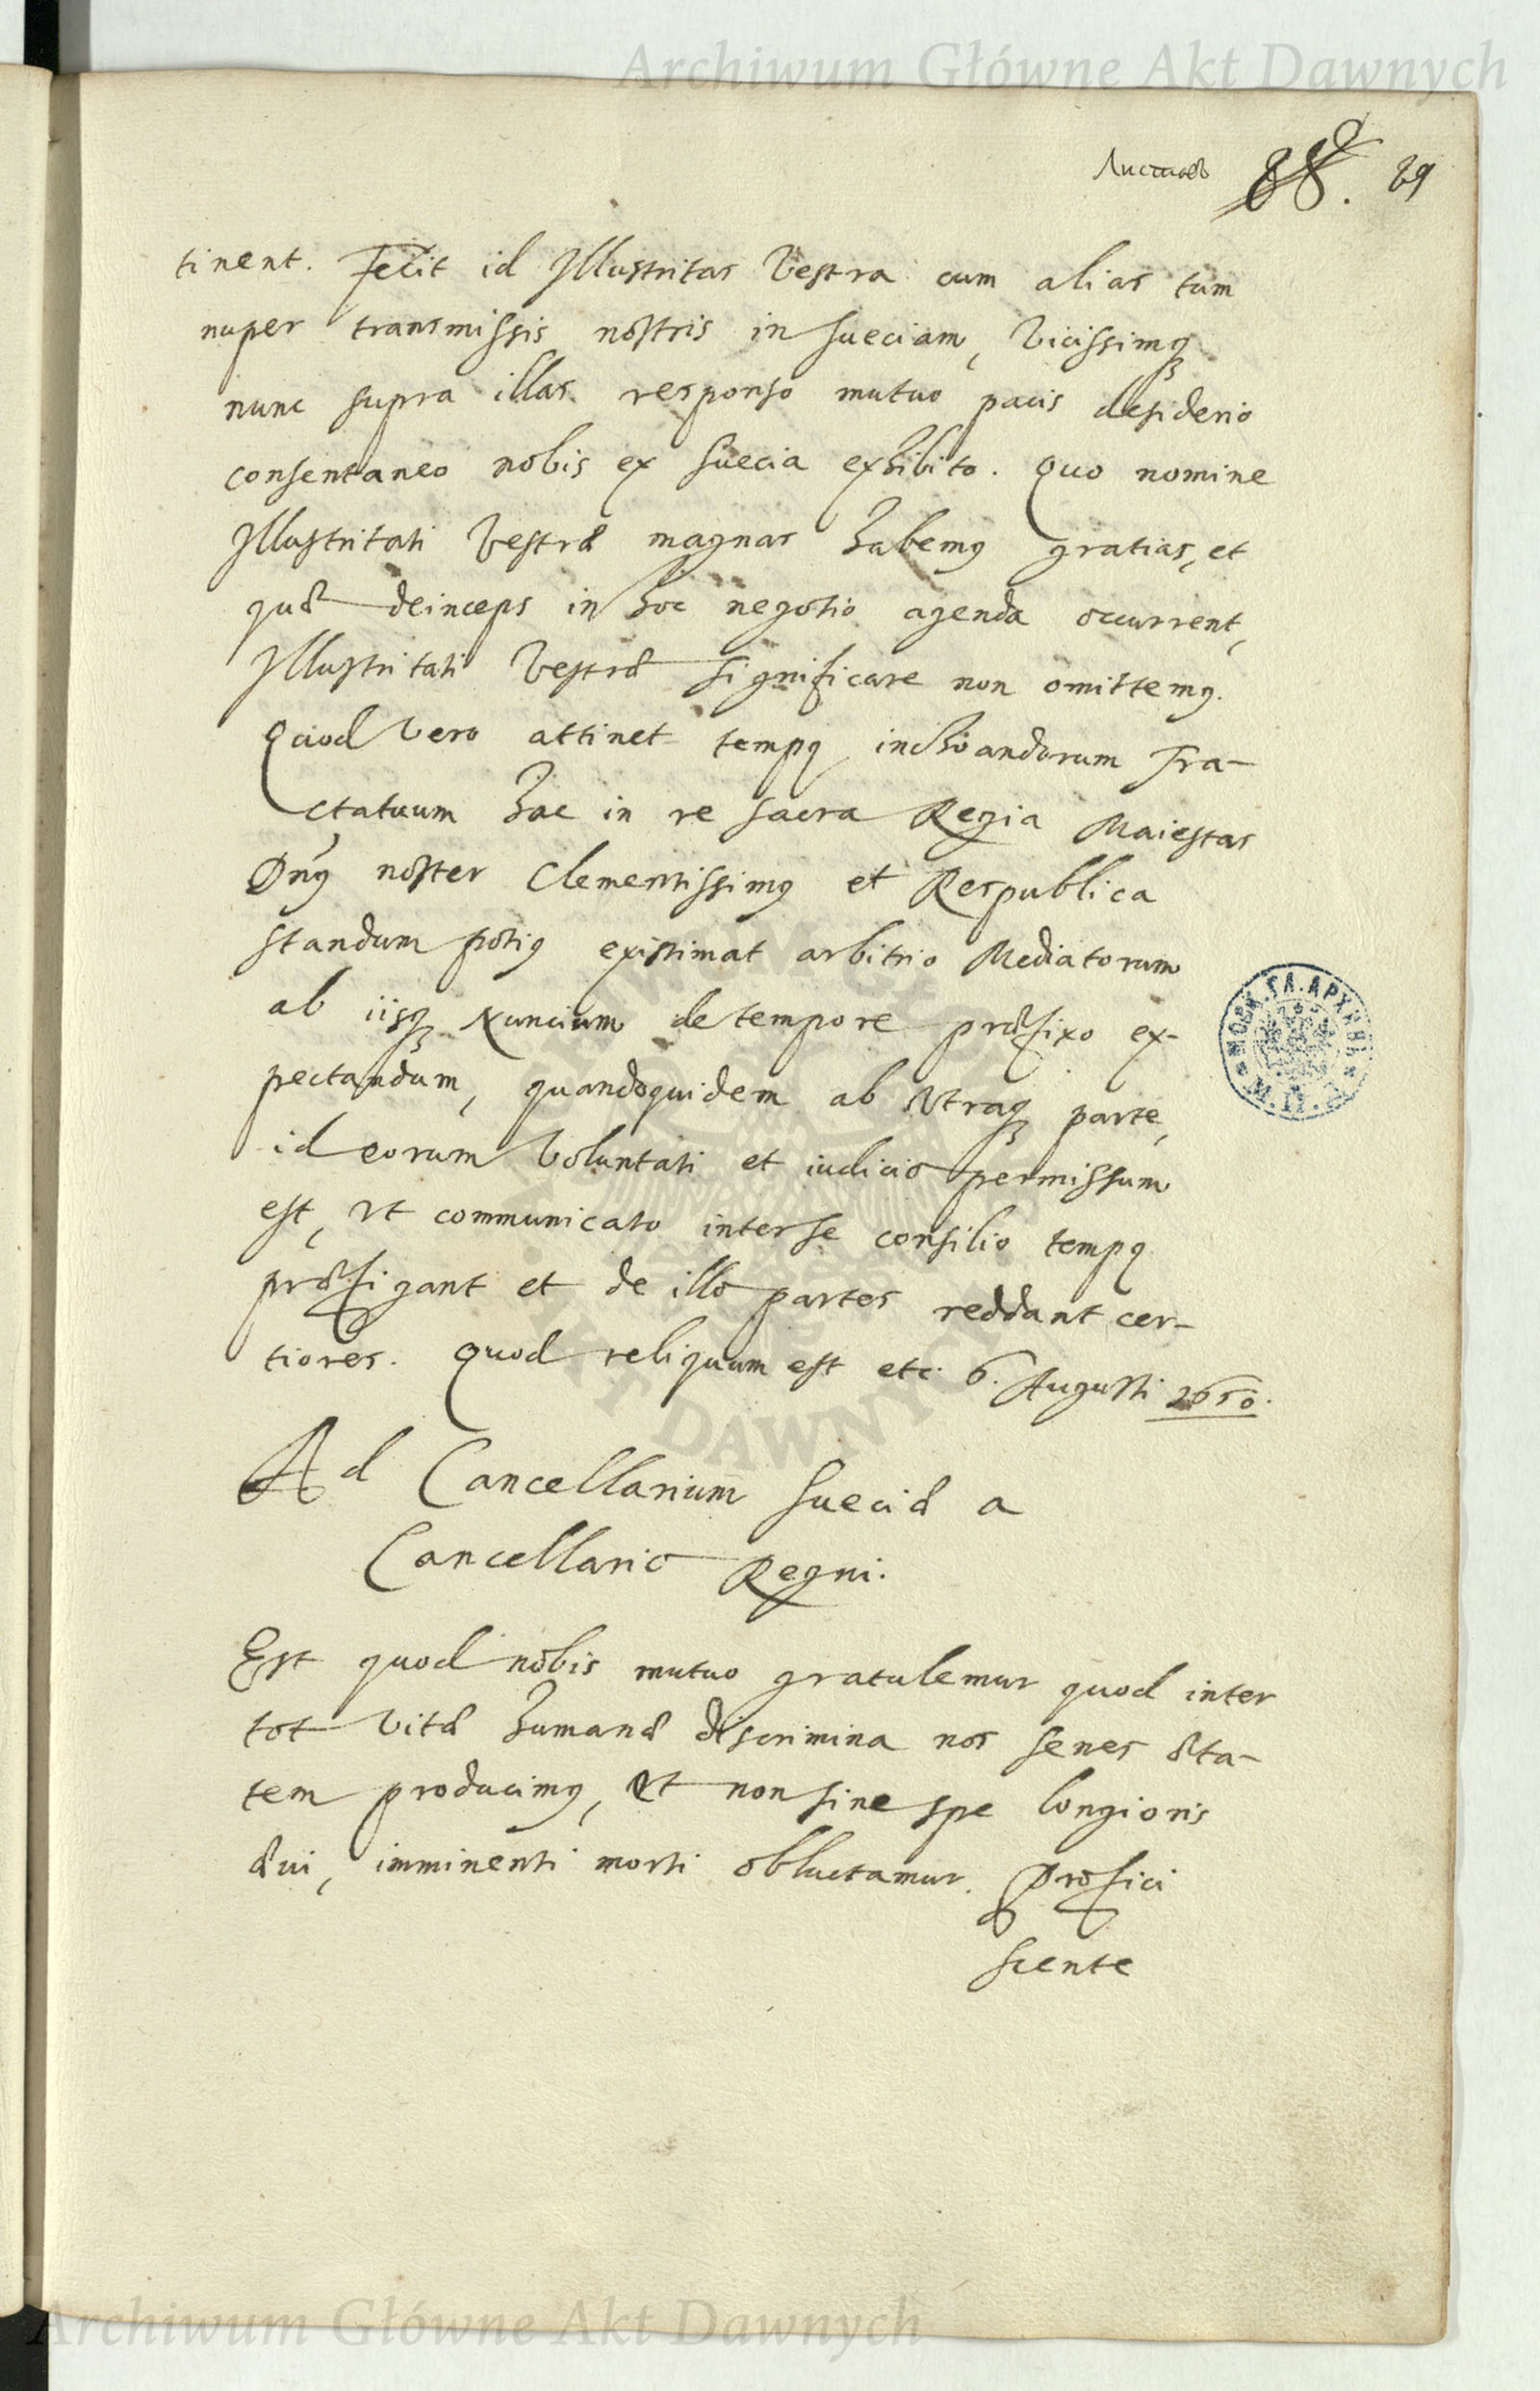 Archiwum Główne Akt Dawnych
Листовъ 88. 89
tinent. Fecit id Illustritas Vestra cum alias tum
nuper transmissis nostris in Sueciam, vicissimq3
nunc supra illas responso mutuo pacis desiderio
consentaneo nobis ex Suecia exhibito. Quo nomine
Illustritati Vestræ magnas habemꝰ gratias, et
quæ deinceps in hoc negotio agenda occurrent,
Illustritati Vestræ significare non omittemꝰ.
Quod vero attinet tempꝰ inchoandorum Tra-
ctatuum hac in re Sacra Regia Maiestas
Dnꝰ noster Clementissimꝰ et Respublica
standum potiꝰ existimat arbitrio Mediatorum
ab iisq3 Nuncium de tempore præfixo ex-
pectandum, quandoquidem ab utraq3 parte,
id eorum voluntati et iudicio permissum
est, ut communicato inter se consilio tempꝰ
præfigant et de illo partes reddant cer-
tiores. Quod reliquum est etc. 6. Augusti 1650.
Ad Cancellarium Sueciæ a
Cancellario Regni.
Est quod nobis mutuo gratulemur quod inter
tot vitæ humanæ discrimina nos senes æta-
tem producimꝰ, et non sine spe longioris
ævi, imminenti morti obluctamur. Profici
scente
МОСК. ГЛ. АРХИВЪ
М. И. Д.
AKT DAWNYCH
Archiwum Główne Akt Dawnych